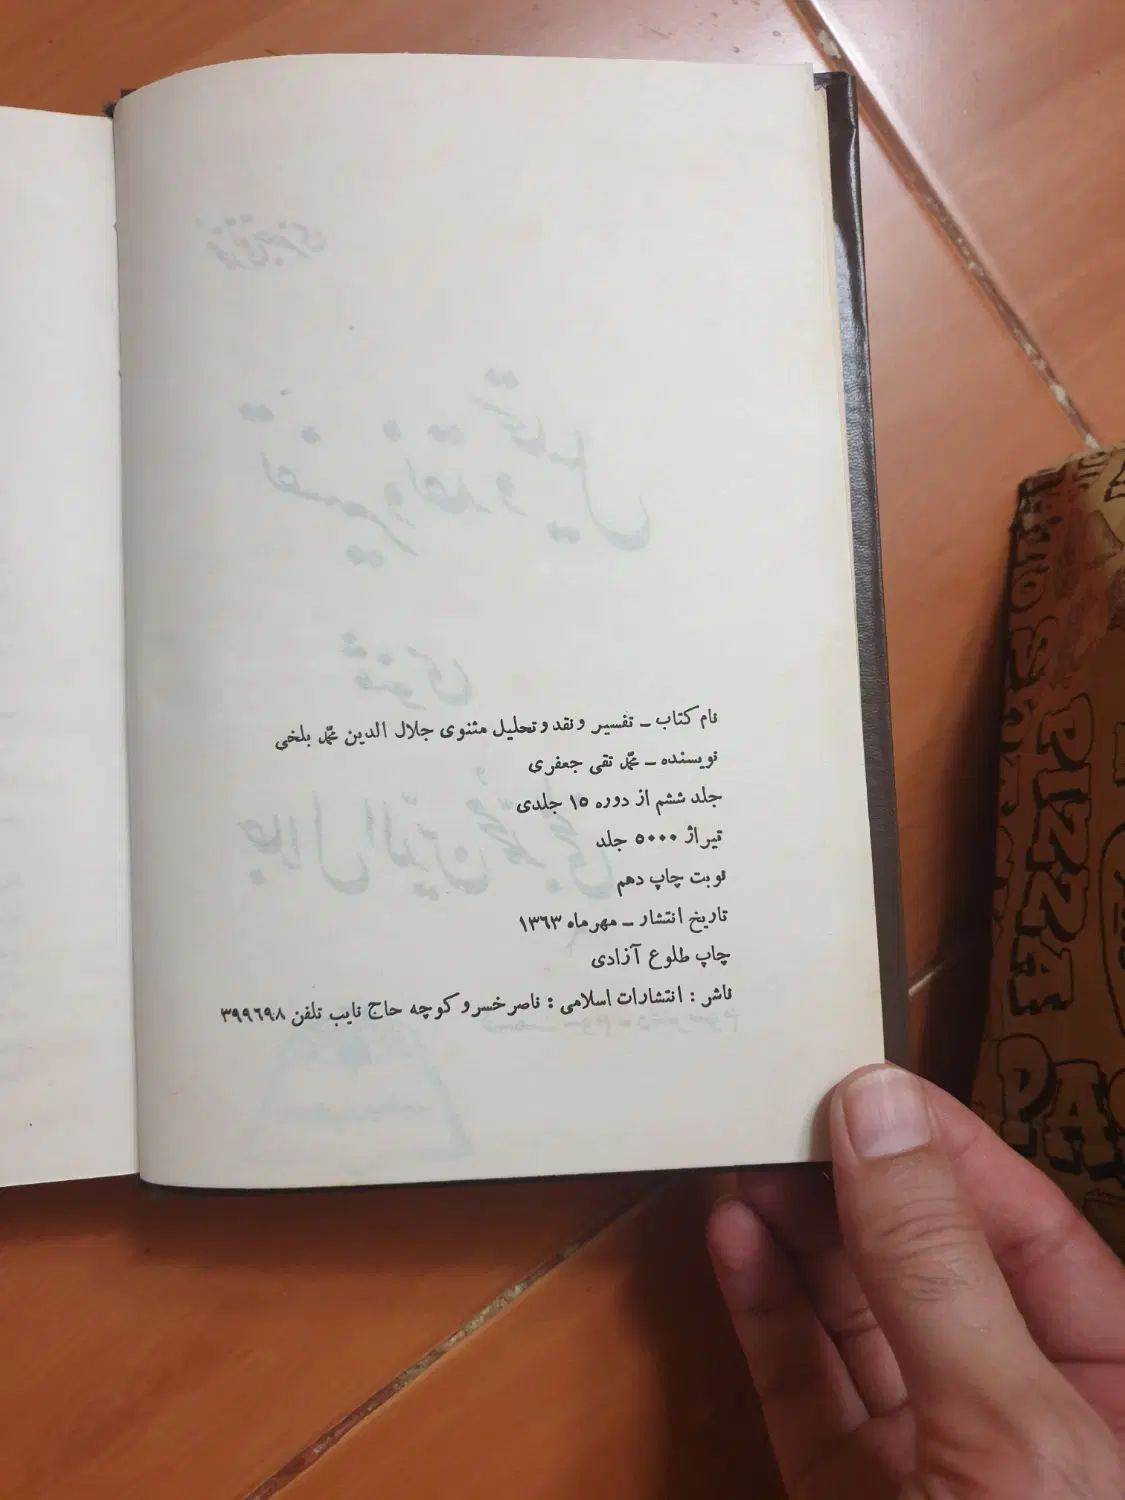 نام کتاب ـ تفسیر و نقد و تحلیل مثنوی جلال الدین محمّد بلخی
نویسنده ـ محمّد تقی جعفری
جلد ششم از دوره ۱۵ جلدی
تیراژ ۵۰۰۰ جلد
نوبت چاپ دهم
تاریخ انتشار ـ مهرماه ۱۳۶۳
چاپ طلوع آزادی
ناشر : انتشارات اسلامی : ناصر خسرو کوچه حاج نایب تلفن ۳۹۹۶۹۸
PIZZA